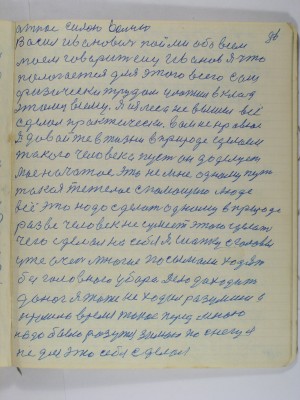 96
атное силою болью
Васил иванович пойми обо всем
моем говорит ему Иванов Я что
полагается для этого всего сам
физически трудом уложил вклад
этому всему. Я из леса не вышел всё
сделал практически. Вам не нравлюс
Я давайте в жизни в природе сделаем
такого человека пуст он доделует
мое начатое это не мне одному
Тетелое с помощию люде
всё это надо сделат одному в природе
разве человек не сумеет этого сделат
чего сделал на себя Я шапку с головы
уже очен многие по самалы ходят
без головного убора Дело доходит
даног Я тоже не ходил разумши в
нужно время такое перед мною
надо было разутся зимою по снегу Я
не для это себя сделал